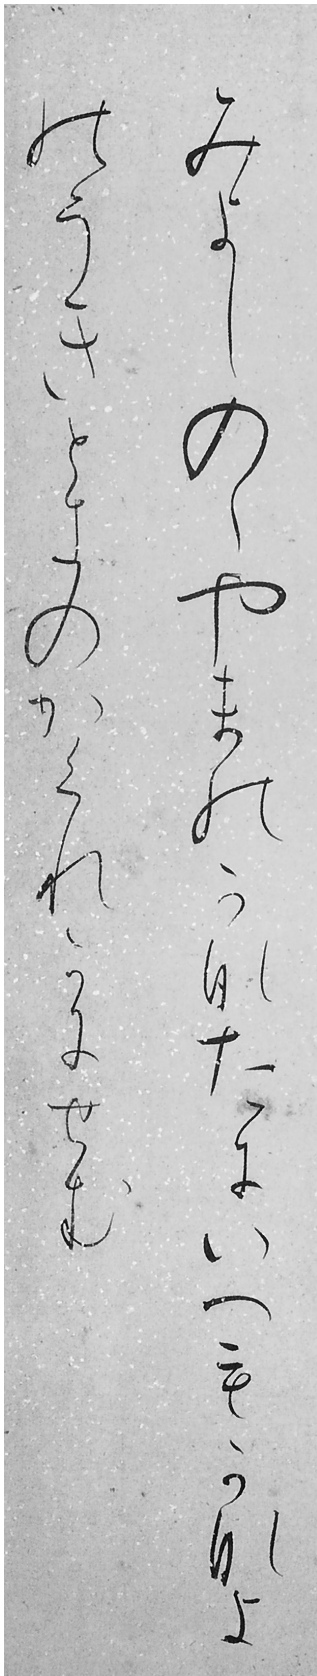 みよしのゝやまのかなたにいへもかなよ
のうきときのかくれかにせむ